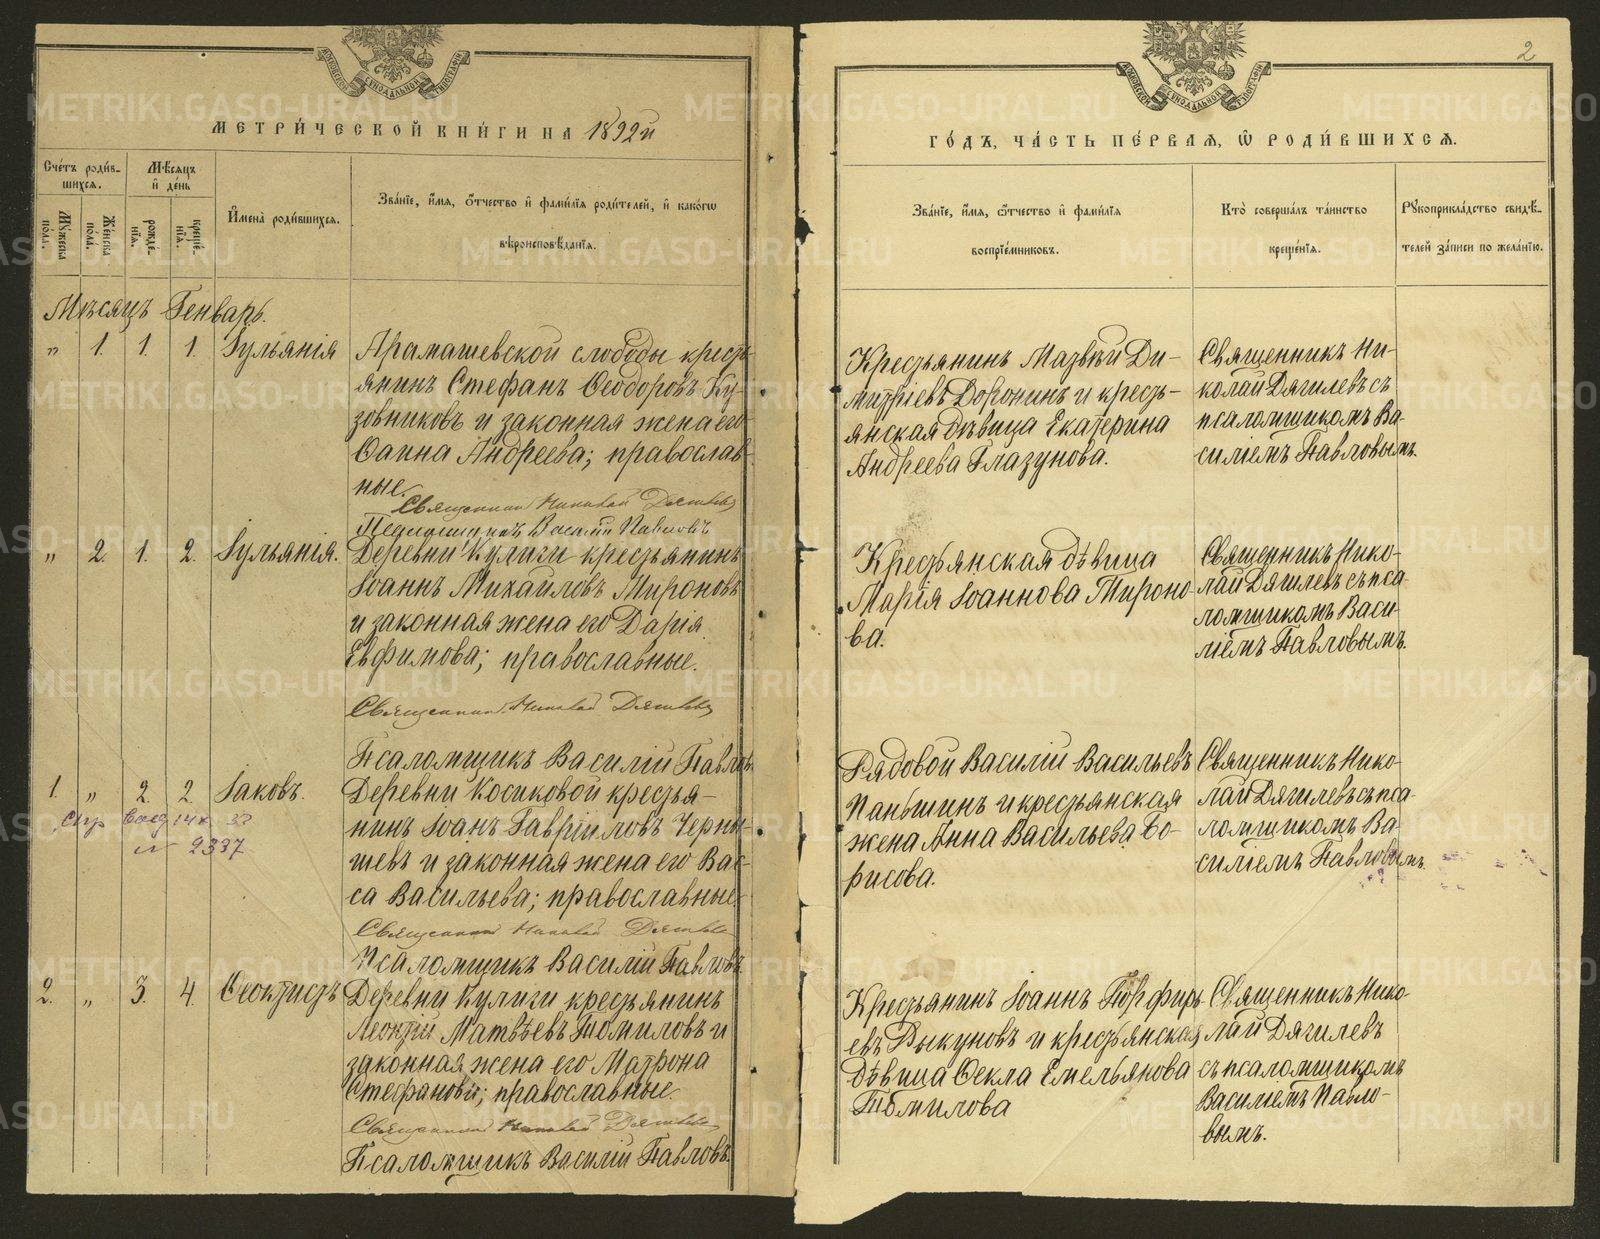 МЕТРИ́ЧЕСКОЙ КНИ́ГИ НА 1892й
Сче́тъ роди́вшихся.
Мѣ́сяцъ и҆ де́нь
Му́жеска по́ла.
Же́нска по́ла.
рожде́нїя.
креще́нїя.
И҆мена̀ роди́вшихся.
Зва́нїе, и҆́мя, ѻ҆́тчество и҆ фами́лїя роди́телей, и҆ како́гѡ
вѣроисповѣ́данїя.
Мѣсяцъ Генварь.
„ 1. 1. 1. Іульянія
Арамашевской слободы кресть-
янинъ Стефанъ Ѳеодоровъ Ку-
зовниковъ и законная жена его
Ѳаина Андреева; православ-
ные.
Священникъ Николай Дягилевъ
Псаломщикъ Василій Павловъ
„ 2. 1. 2. Іульянія.
Деревни Кулиги крестьянинъ
Іоаннъ Михайловъ Мироновъ
и законная жена его Дарія
Евфимова; православные.
Священникъ Николай Дягилевъ
Псаломщикъ Василій Павловъ
1. „ 2. 2. Іаковъ.
Деревни Косиковой крестья-
нинъ Іоанъ Гавріиловъ Черны-
шевъ и законная жена его Вас-
са Васильева; православные.
№ 2337
Священникъ Николай Дягилевъ
Псаломщикъ Василій Павловъ
2. „ 3. 4. Ѳеоктистъ
Деревни Кулиги крестьянинъ
Леонтій Матвѣевъ Томиловъ и
законная жена его Матрона
Стефанова; православные.
Священникъ Николай Дягилевъ
Псаломщикъ Василій Павловъ.
2
ГО́ДЪ, ЧА́СТЬ ПЕ́РВАЯ, Ѡ҆ РОДИ́ВШИХСЯ.
Зва́нїе, и҆́мя, ѻ҆́тчество и҆ фами́лїя
воспрїе́мниковъ.
Кто̀ соверша́лъ та́инство
креще́нїя.
Рꙋкоприкла́дство свидѣ́-
телей за́писи по жела́нїю.
Крестьянинъ Матвѣй Ди-
митріевъ Доронинъ и кресть-
янская дѣвица Екатерина
Андреева Глазунова.
Священникъ Ни-
колай Дягилевъ съ
псаломщикомъ Ва-
силіемъ Павловымъ.
Крестьянская дѣвица
Марія Іоаннова Мироно-
ва.
Священникъ Нико-
лай Дягилевъ съ пса-
ломщикомъ Васи-
ліемъ Павловымъ.
Рядовой Василій Васильевъ
Паньшинъ и крестьянская
жена Анна Васильева Бо-
рисова.
Священникъ Нико-
лай Дягилевъ съ пса-
ломщикомъ Ва-
силіемъ Павловымъ.
Крестьянинъ Іоаннъ Порфирь-
евъ Рыкуновъ и крестьянская
дѣвица Ѳекла Емельянова
Томилова
Священникъ Нико-
лай Дягилевъ
съ псаломщикомъ
Василіемъ Павло-
вымъ.
METRIKI.GASO-URAL.RU